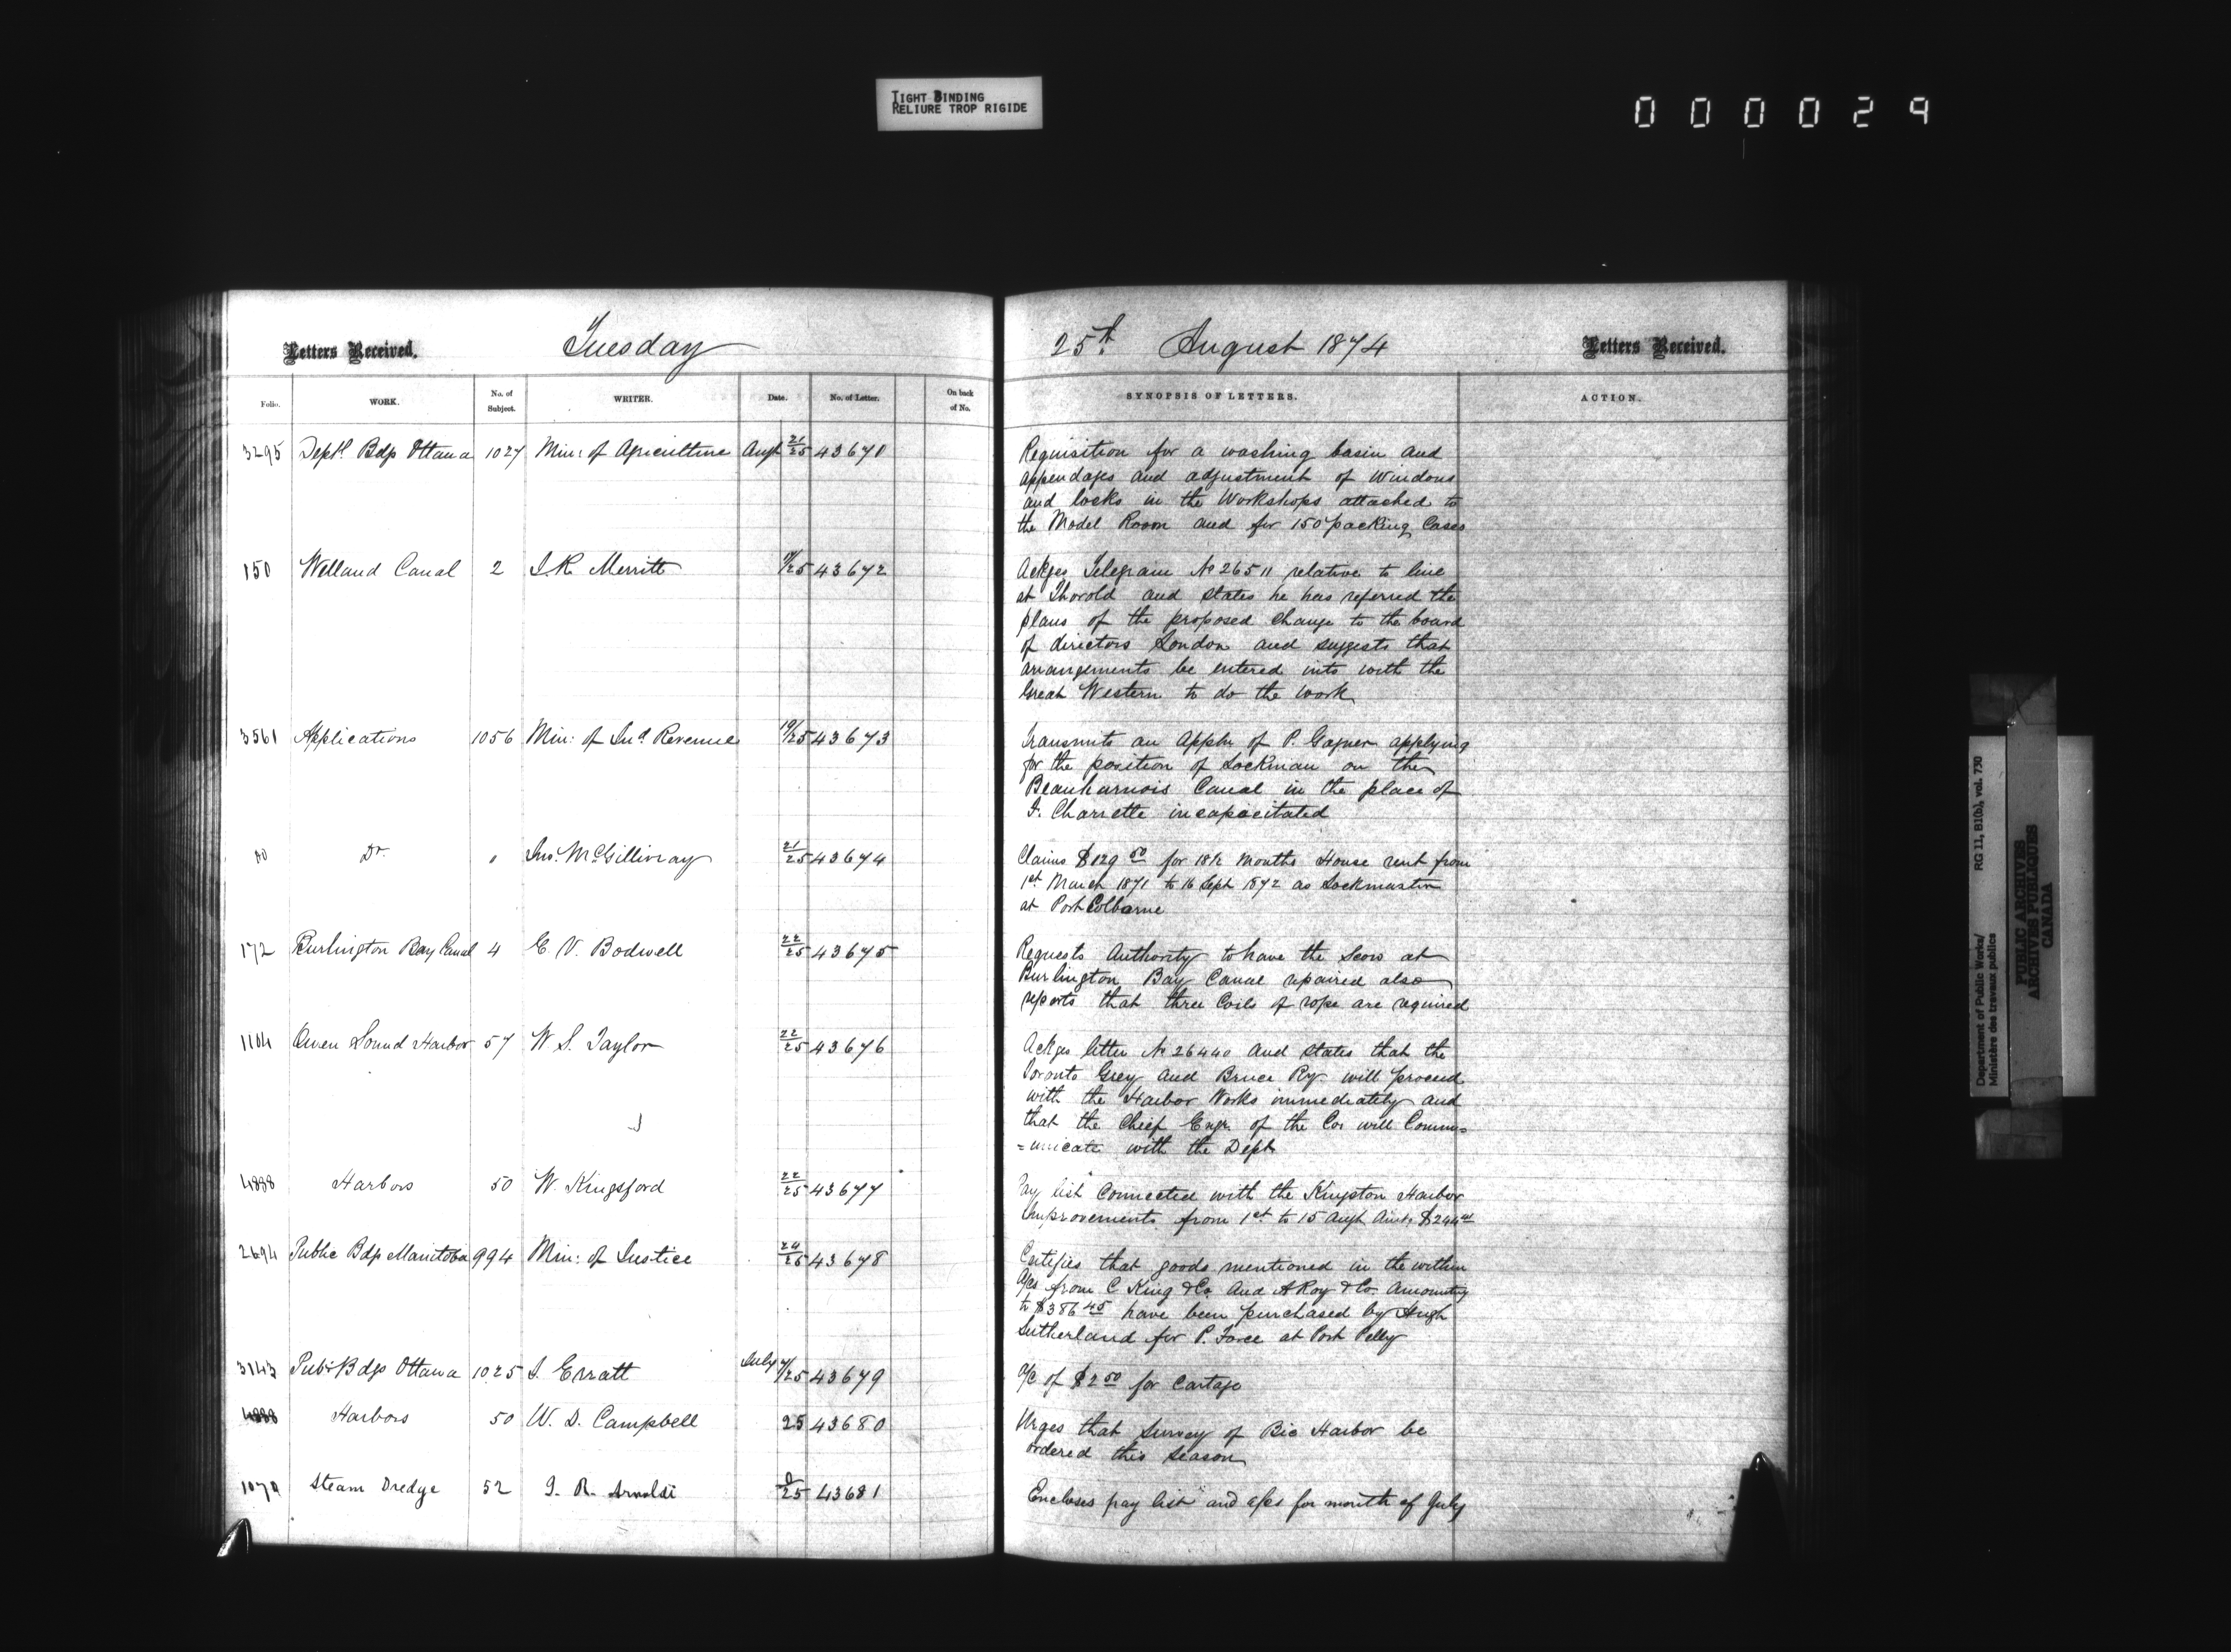 TIGHT BINDING
RELIURE TROP RIGIDE
000029
Letters Received. Tuesday 25th August 1874 Letters Received.
Folio. WORK. No. of Subject. WRITER. Date. No. of Letter. On back of No. SYNOPSIS OF LETTERS. ACTION.
3295 Deptl Bdgs Ottawa 1027 Min: of Agriculture Augt 21/25 43671 Requisition for a washing basin and
appendages and adjustment of Windows
and locks in the Workshops attached to
the Model Room and for 150 packing Cases
150 Welland Canal 2 J.R. Merritt 25 43672 Ackges Telegram No 26511 relative to line
at Thorold and states he has referred the
plans of the proposed change to the board
of directors London and suggests that
arrangements be entered into with the
Great Western to do the work
3561 Applications 1056 Min: of Ind Revenue 19/25 43673 Transmits an Appln of P. Gagner applying
for the position of Lockman on the
Beauharnois Canal in the place of
J. Charrette incapacitated
Do Do " Jno. McGillivray 21/25 43674 Claims $129 50 for 18½ Months House rent from
1st March 1871 to 16 Sept 1872 as Lockmaster
at Port Colborne
172 Burlington Bay Canal 4 E. V. Bodwell 22/25 43675 Requests Authority to have the Scow at
Burlington Bay Canal repaired also
reports that three Coils of rope are required
1104 Owen Sound Harbor 57 W. S. Taylor 22/25 43676 Ackges letter No 26440 and states that the
Toronto Grey and Bruce Ry. will proceed
with the Harbor Works immediately and
that the Chief Engr. of the Co. will Comm=
=unicate with the Dept
4888 Harbors 50 W. Kingsford 22/25 43677 Pay list Connected with the Kingston Harbor
Improvements from 1st to 15 Augt Amt. $244
2694 Public Bdgs Manitoba 994 Min: of Justice 24/25 43678 Certifies that goods mentioned in the within
A/cs from C King & Co. and A Roy & Co. Amounting
to $386 45 have been purchased by Hugh
Sutherland for P. Force at Port Pelly
3143 Pub: Bdgs Ottawa 1025 J. Erratt July 25 43679 A/c of $2 50 for Cartage
4888 Harbors 50 W. D. Campbell 25 43680 Urges that Survey of Bic Harbor be
ordered this Season
1070 Steam Dredge 52 J. R. Arnoldi 25 43681 Encloses pay list and a/cs for month of July
Department of Public Works/ RG 11, B10b), vol. 730
Ministère des travaux publics
PUBLIC ARCHIVES
ARCHIVES PUBLIQUES
CANADA